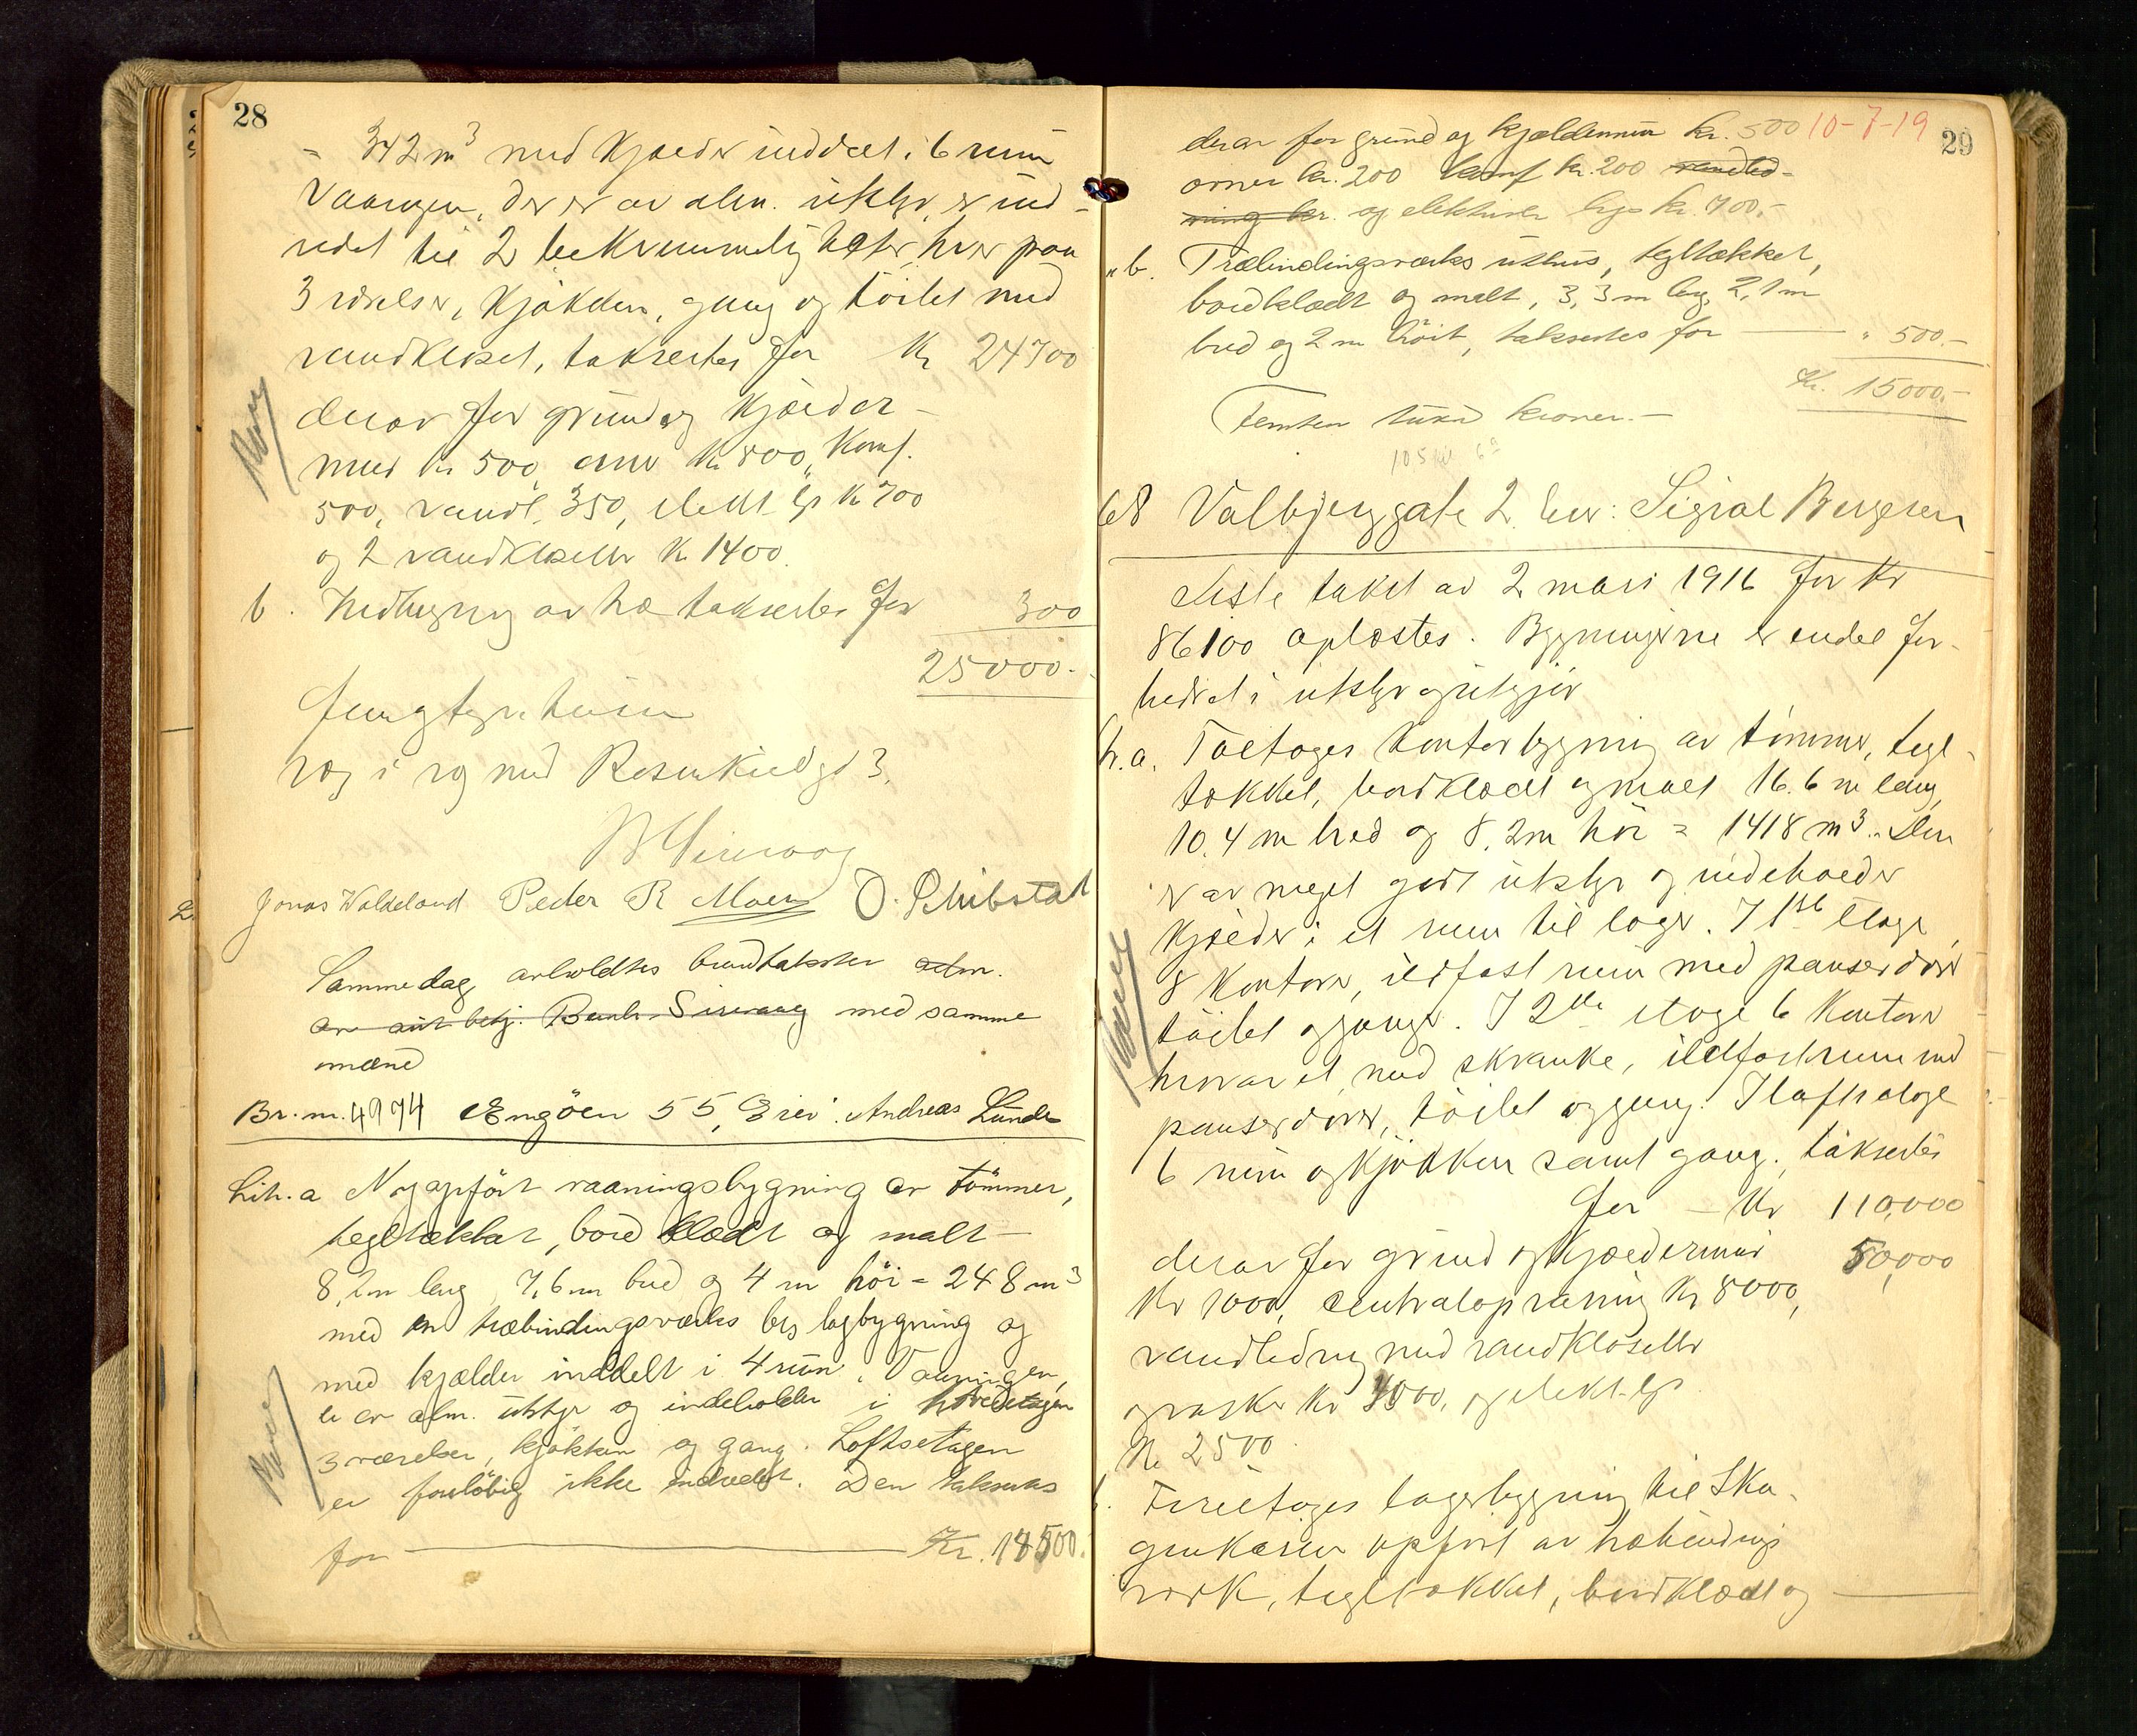 28
= 342 m3 med kjælder inddelt i 6 rum
Vaaningen, der er av alm. utstyr, er ind-
redet til 2 bekvemmeligheter, hver paa
3 værelser, kjøkken, gang og toilet med
vandkloset, taksertes for Kr 24700
derav for grund og kjælder-
mur kr 500, ovne kr 800, komf.
500, vandl. 350, elekt. lys kr 700
og 2 vandklosetter kr 1400.
b. Nedbygning av træ taksertes for 300
25000.-
væg i væg med Rosenkildegt 3.
Jonas Waldeland Peder R Moen O. Schibstad
Samme dag avholdtes brandtakster adm.
av aut. betj. Bernh. Sirevaag med samme
mænd
Br. nr. 4994 Engöen 55, Eier: Andreas Lunde
Litr. a Nyopfört vaaningsbygning av tömmer,
tegltækket, bordklædt og malt -
8,2 m lang, 7,6 m bred og 4 m höi = 248 m3
med en træbindingsværks bislagbygning og
med kjælder inddelt i 4 rum. Vaaningen,
er av alm. utstyr og indeholder i hovedetagen
3 værelser, kjökken og gang. Loftsetagen
er forelöbig ikke indredet. Den taksertes
for Kr. 14500.
29
10-7-19
derav for grund og kjældermur kr. 500
ovner kr. 200 komf kr. 200 vandled-
ning kr. og elektrisk lys kr. 700.-
" b. Træbindingsværks uthus, tegltækket,
bordklædt og malt, 3,3 m lang, 2,1 m
bred og 2 m höit, taksertes for " 500.-
Kr. 15000.-
Femten tusen kroner.-
68 Valbjerggate 2. Eier: Sigval Bergesen
Siste takst av 2 mars 1916 for kr
86100 oplæstes. Bygningerne er endel for-
bedret i utstyr og utgjør
Ltr. a. Toetages kontorbygning av tømmer, tegl-
tækket, bordklædt og malt 16.6 m lang,
10.4 m bred og 8.2 m høi = 1418 m3. Den
er av meget godt utstyr og indeholder
kjælder i et rum til lager. I 1ste etage
8 kontorer, ildfast rum med panserdører
toilet og gange. I 2den etage 6 kontorer
hvorav et med skranke, ildfast rum med
panserdører, toilet og gang. I loftsetage
6 rum og kjøkken samt gang, taksertes
for - Kr 110,000
derav for grund og kjældermur 50,000
Kr 1000, centralopvarming Kr 8000,
vandledning med vandklosetter
og vaske kr 4000, og elekt. lys
Kr 2500.
b. Fireetages lagerbygning til Ska-
genkaien opført av træbindings
værk, tegltækket, bordklædt og